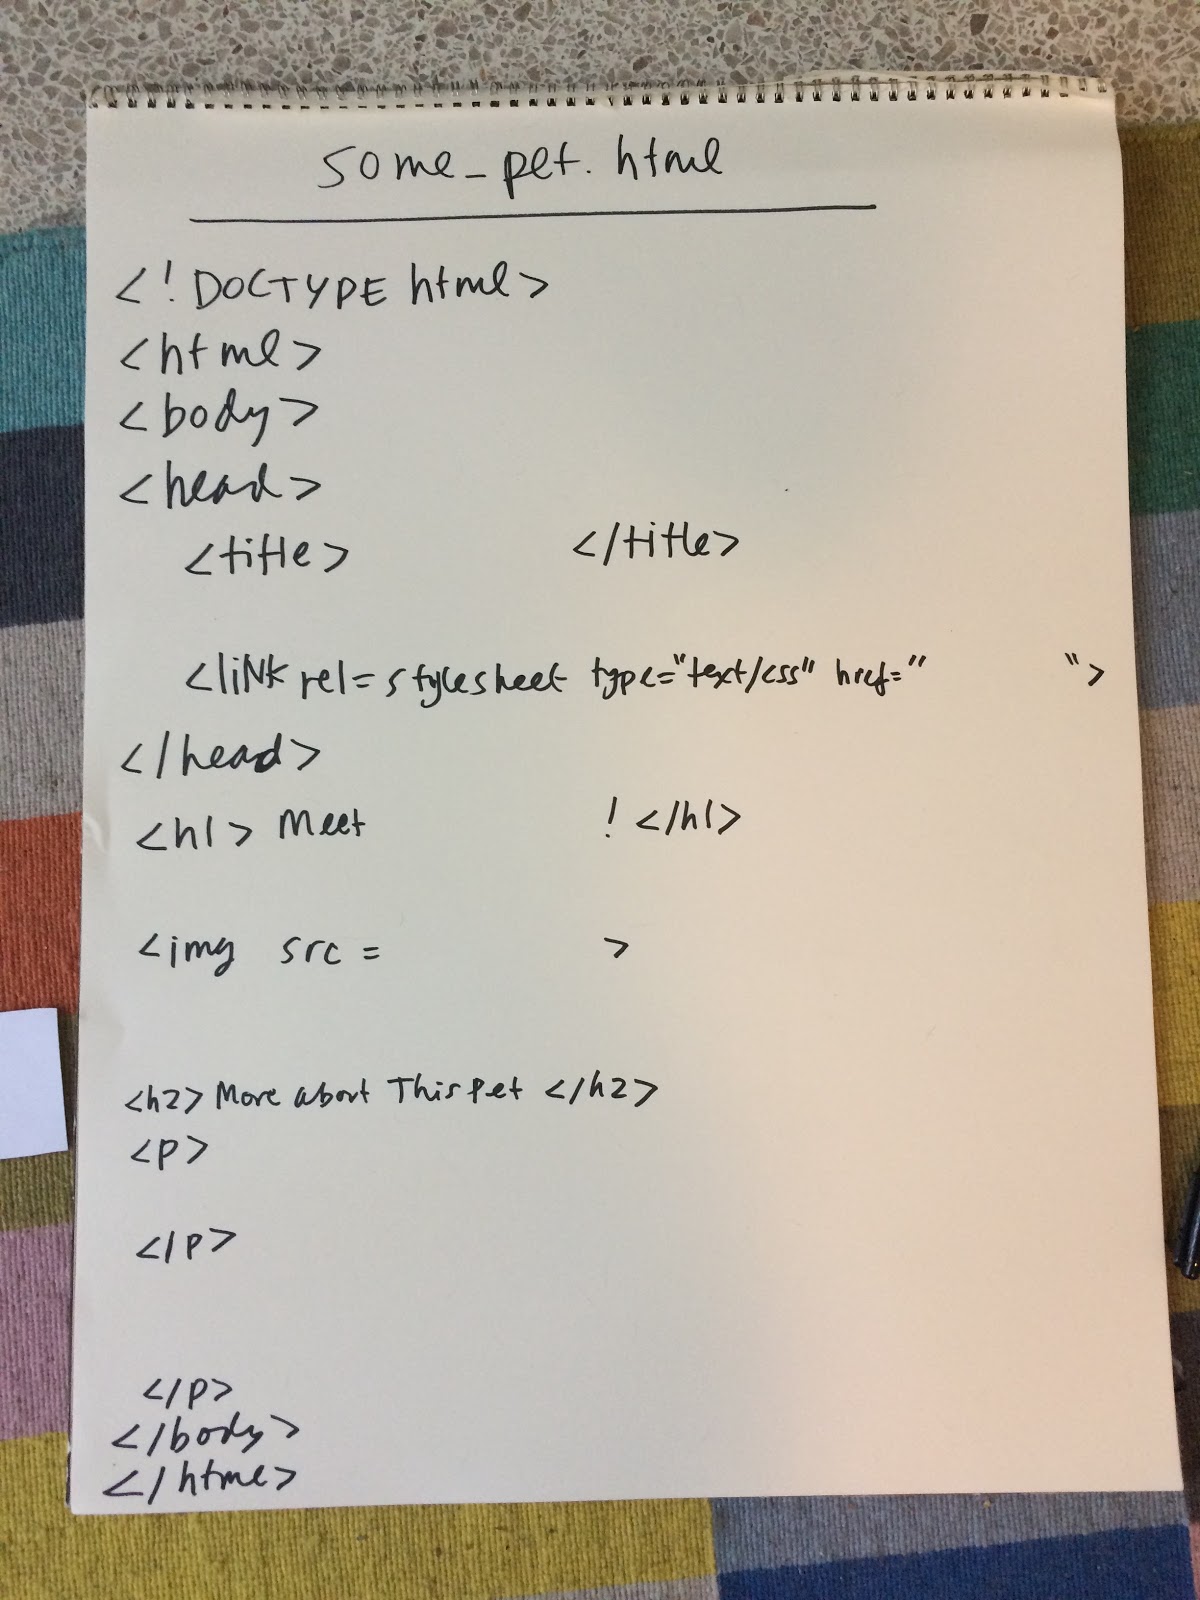 some_pet.html
<!DOCTYPE html>
<html>
<body>
<head>
<title> </title>
<link rel=stylesheet type="text/css" href=" ">
</head>
<h1> Meet ! </h1>
<img src = >
<h2> More about This Pet </h2>
<p>
</p>
</p>
</body>
</html>